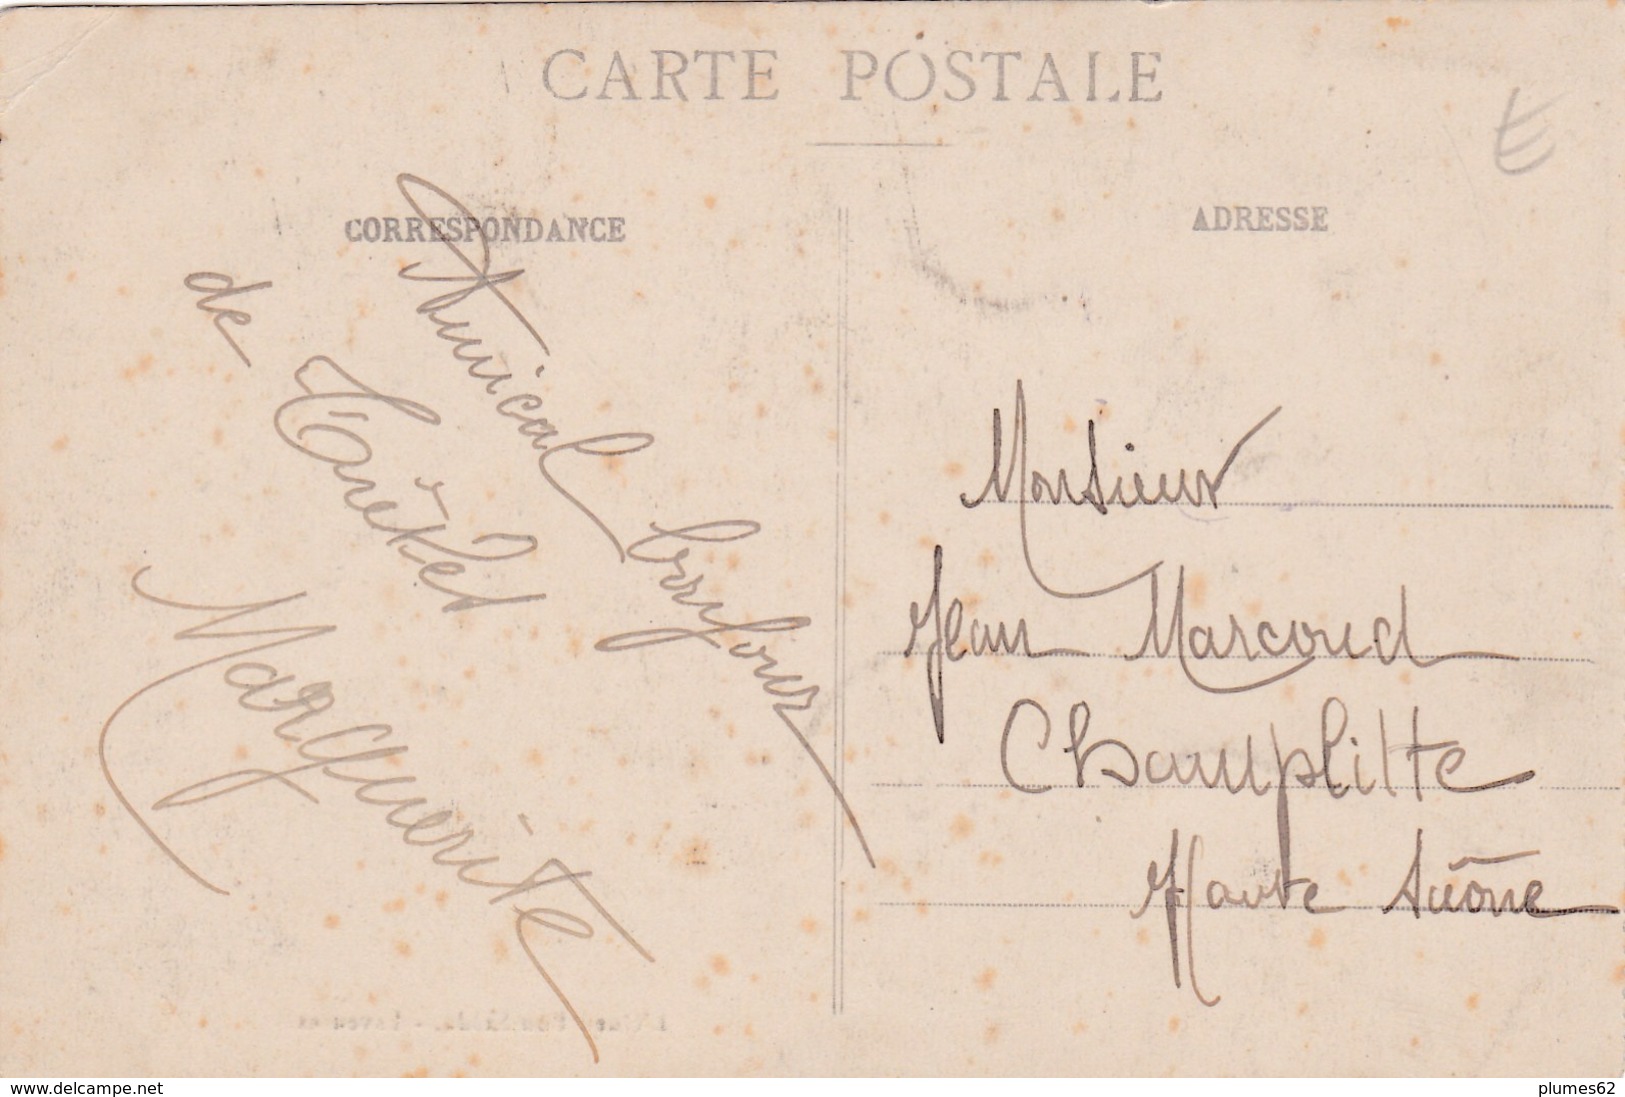 CARTE POSTALE
CORRESPONDANCE
ADRESSE
Amical bonjour
de
Marguerite
Monsieur
Jean Marcoud
Champlitte
Haute Saône
www.delcampe.net
plumes62